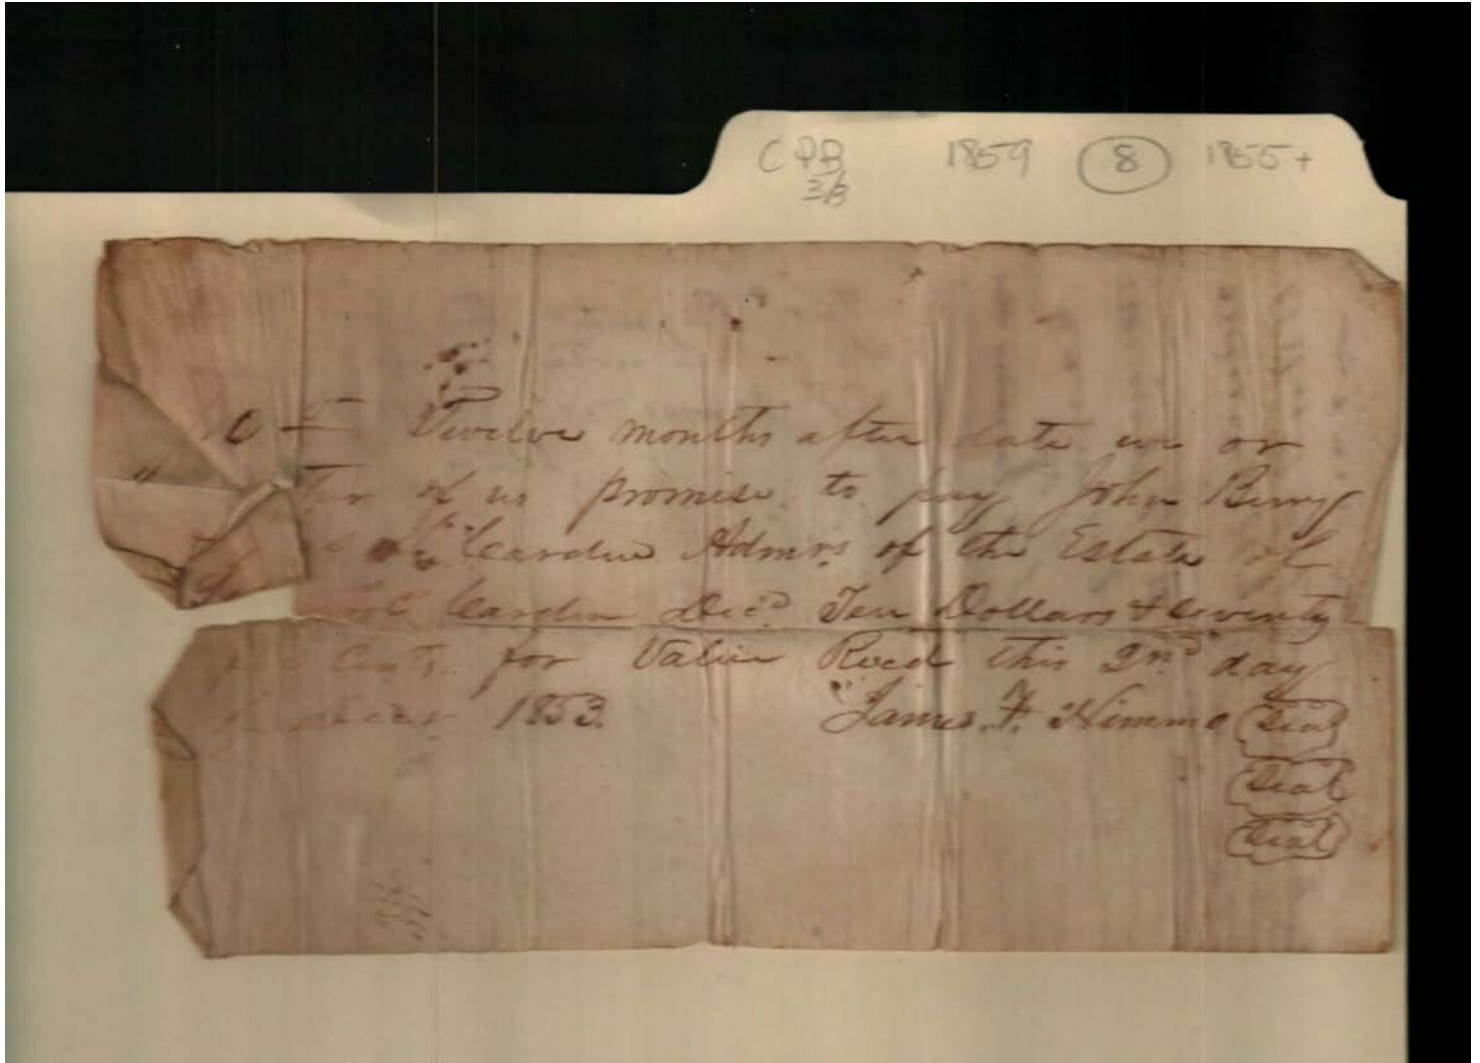 CPB 1859 8 1855+
3/3
Twelve months after date we or
of us promise to pay John Berry
Cardin Admrs of the Estate of
Cardin Decd Ten Dollars & Seventy
Cents for Value Recd this 2nd day
1853. James. F. Nimmo Seal
Seal
Seal